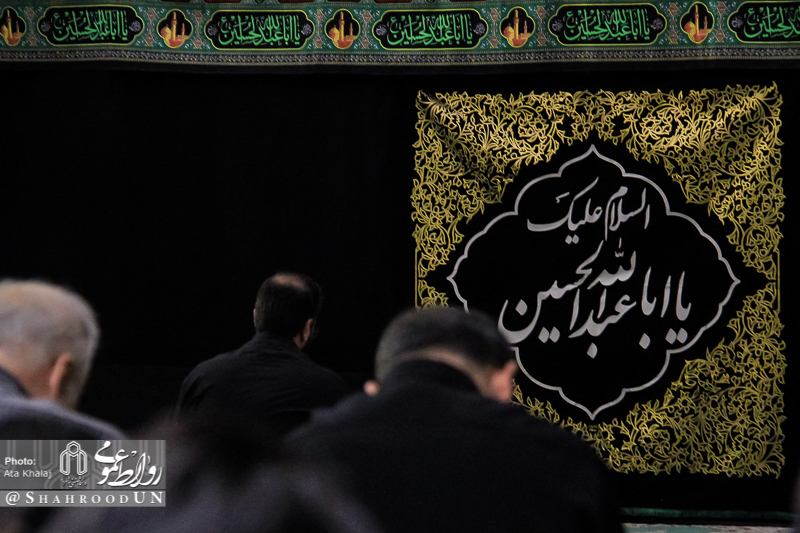 یا اباعبدالله الحسین
یا اباعبدالله الحسین
یا اباعبدالله الحسین
یا اباعبدالله الحسین
یا اباعبدالله الحسین
السلام علیک
یا ابا عبدالله الحسین
Photo:
Ata Khalaj
روابط عمومی
@SHAHROODUN